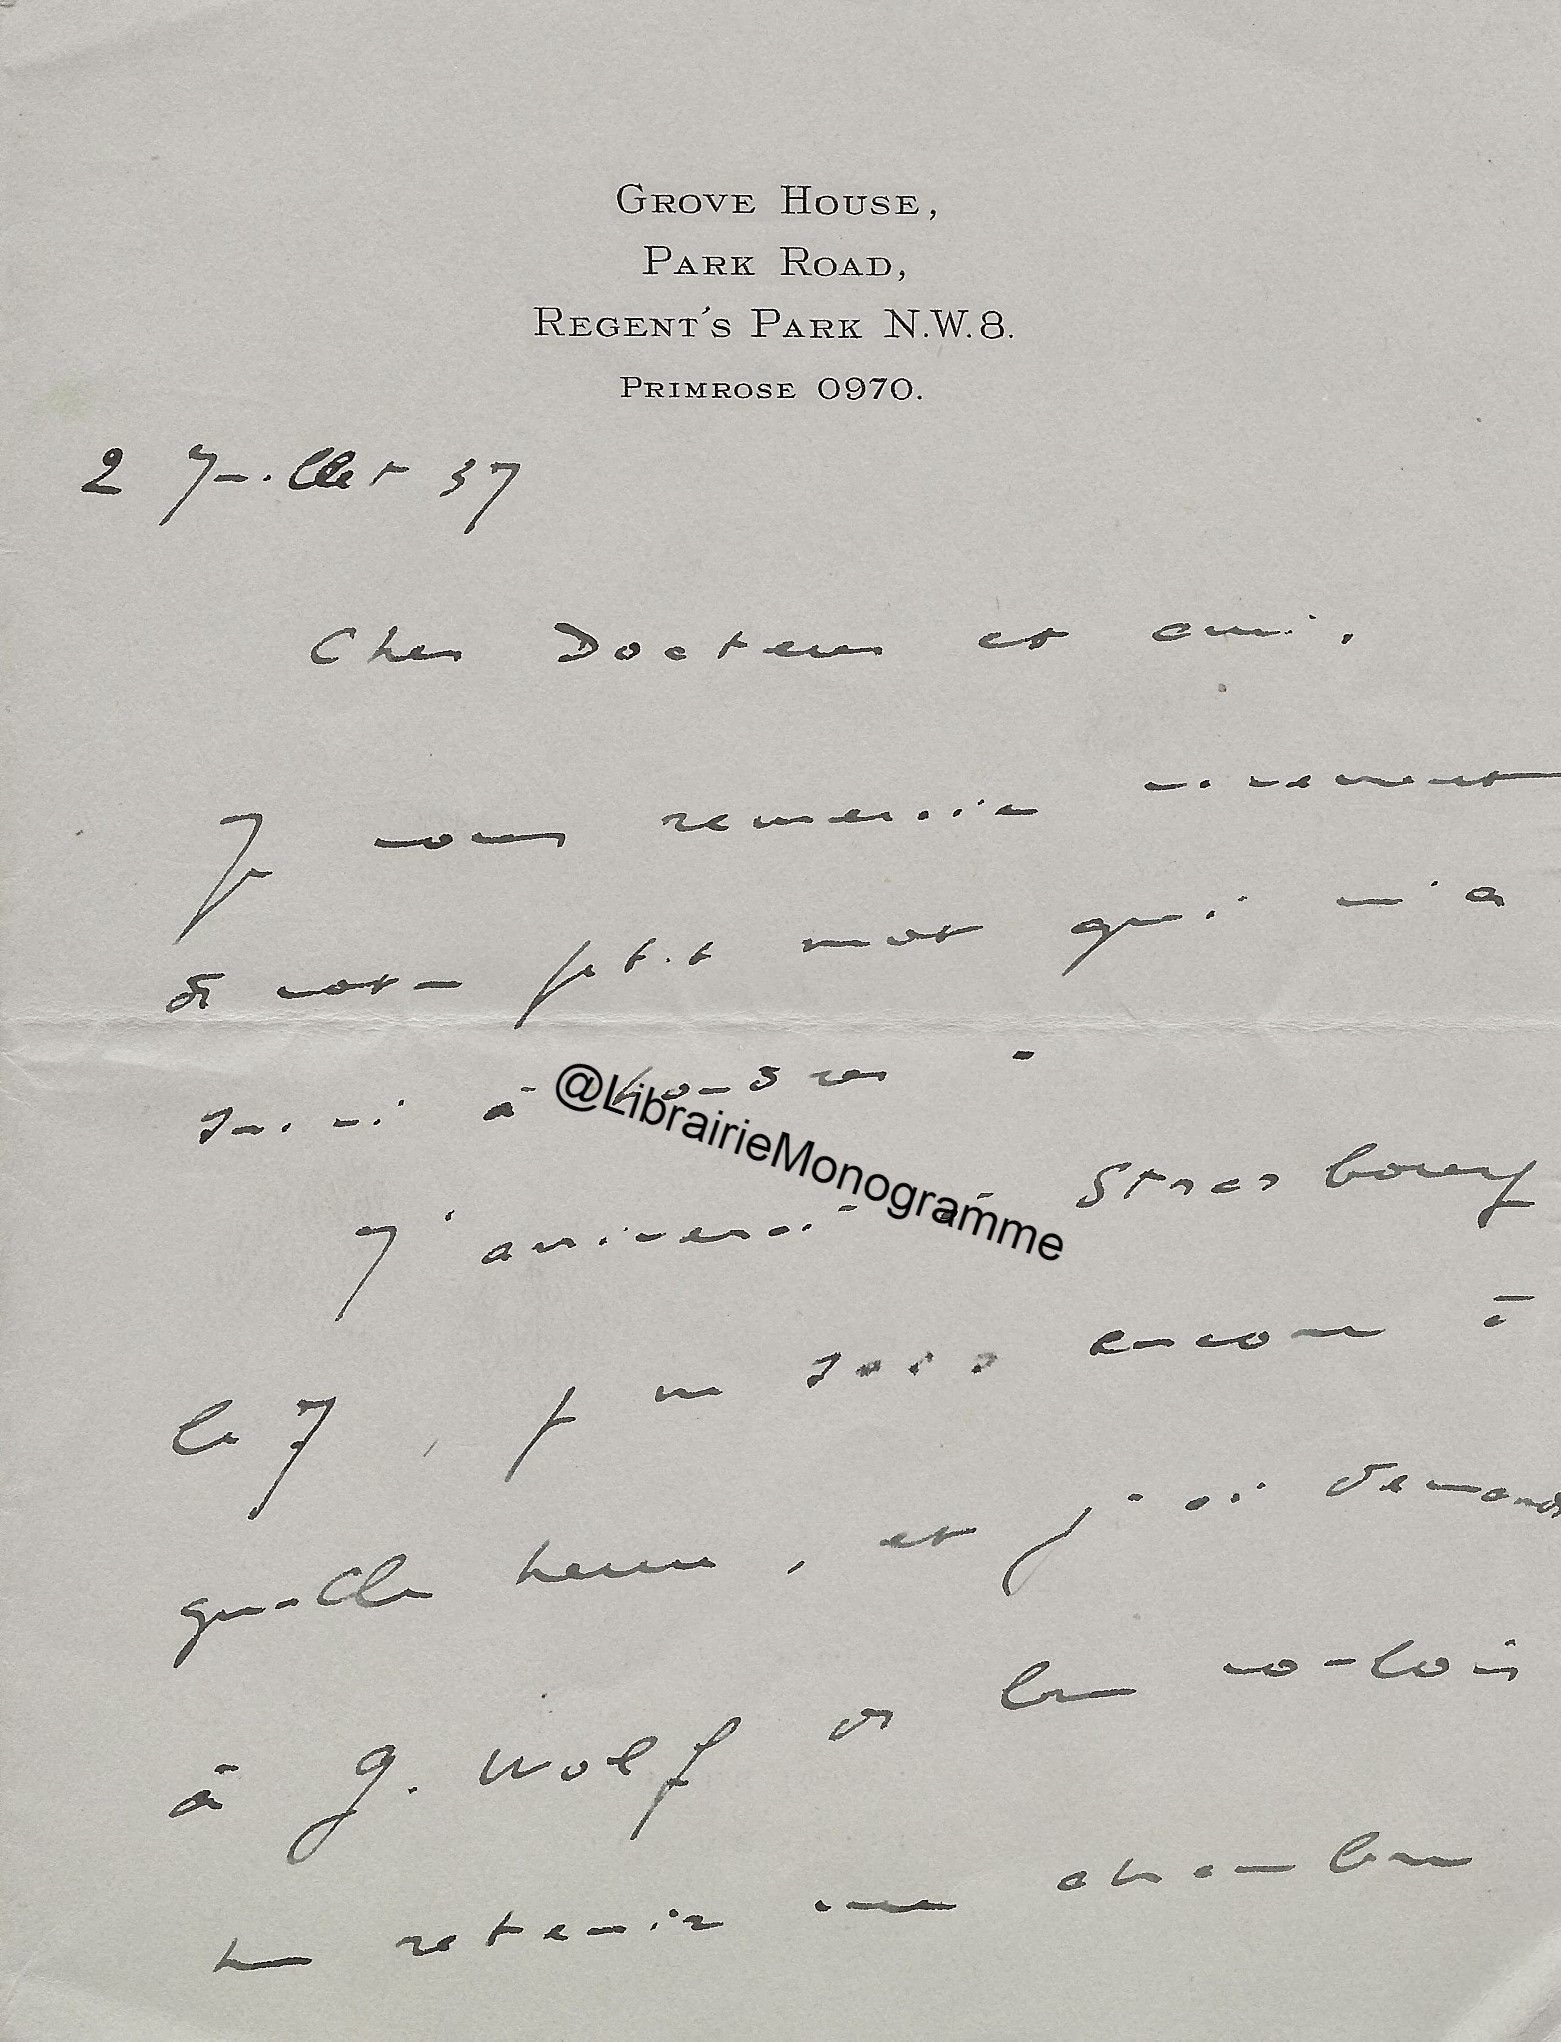 GROVE HOUSE,
PARK ROAD,
REGENT'S PARK N.W.8.
PRIMROSE 0970.
2 Juillet 37
Cher Docteur et ami,
Je vous remercie vivement
de votre petit mot qui m'a
suivi à Londres
@LibrairieMonogramme
J'arriverai à Strasbourg
le 7, je ne sais encore à
quelle heure, et j'ai demandé
à G. Wolf de bien vouloir
me retenir une chambre